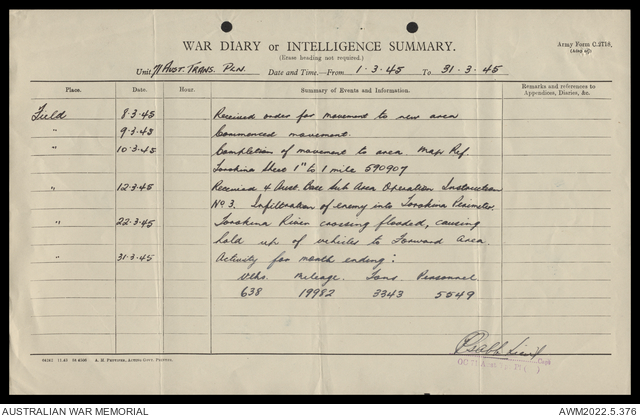 Army Form C.2118,
WAR DIARY or INTELLIGENCE SUMMARY.
(Erase heading not required.)
Unit 71 Aust. Trans. Pln. Date and Time—From 1.3.45 To 31.3.45
Place. Date. Hour. Summary of Events and Information. Remarks and references to
Appendices, Diaries, &c.
Field 8.3.45 Received order for movement to new area
" 9.3.45 Commenced movement.
" 10.3.45 Completion of movement to area Map Ref.
Torokina Sheet 1" to 1 mile 590907
" 12.3.45 Received 4 Aust. Base Sub Area Operation Instruction
No 3. Infiltration of enemy into Torokina Perimeter.
" 22.3.45 Torokina River crossing flooded, causing
hold up of vehicles to Forward Area.
" 31.3.45 Activity for month ending:
Vehs. Mileage. Tons. Personnel
638 19982 3343 5549
Lieut
A. H. Pettifer, Acting Govt. Printer.
AUSTRALIAN WAR MEMORIAL
AWM2022.5.376